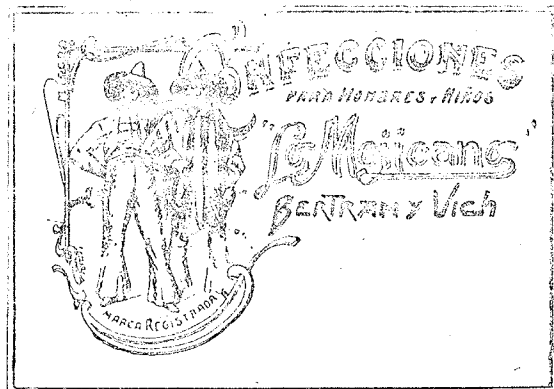 CONFECCIONES
PARA HOMBRES Y NIÑOS
"La Mejicana"
BERTRAN Y VICH
MARCA REGISTRADA